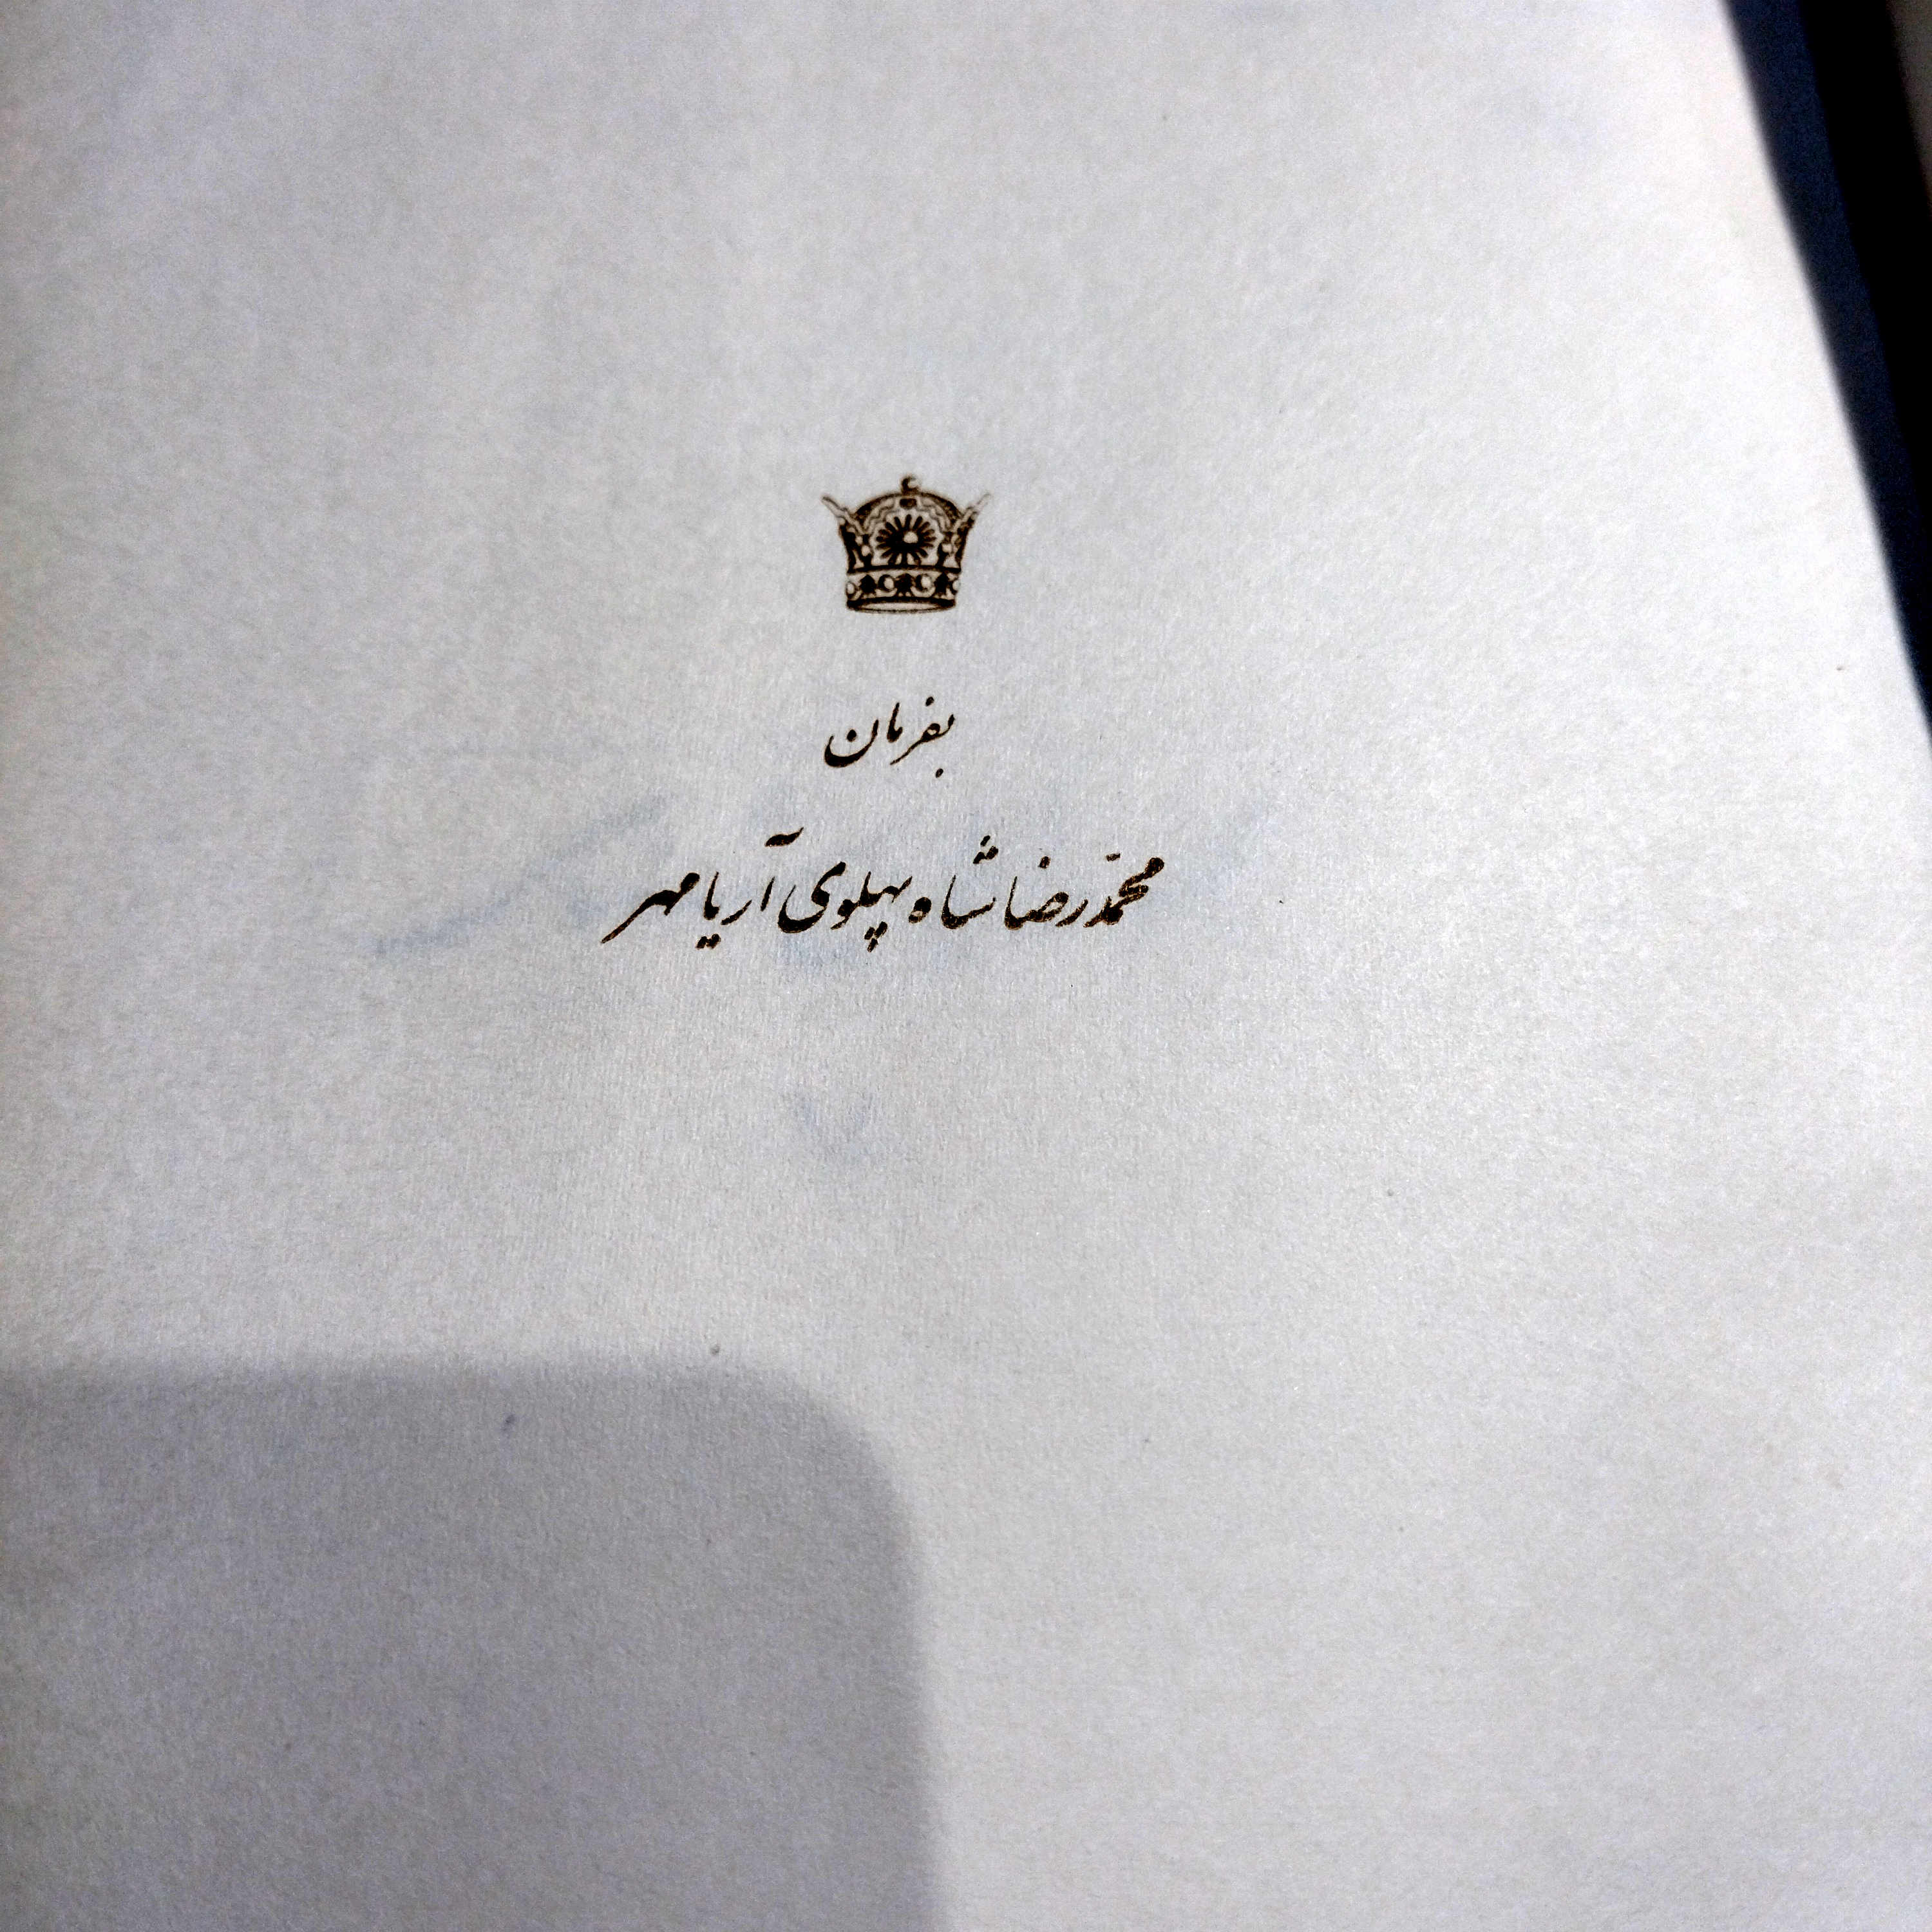 بفرمان
محمّدرضا شاه پهلوی آریامهر